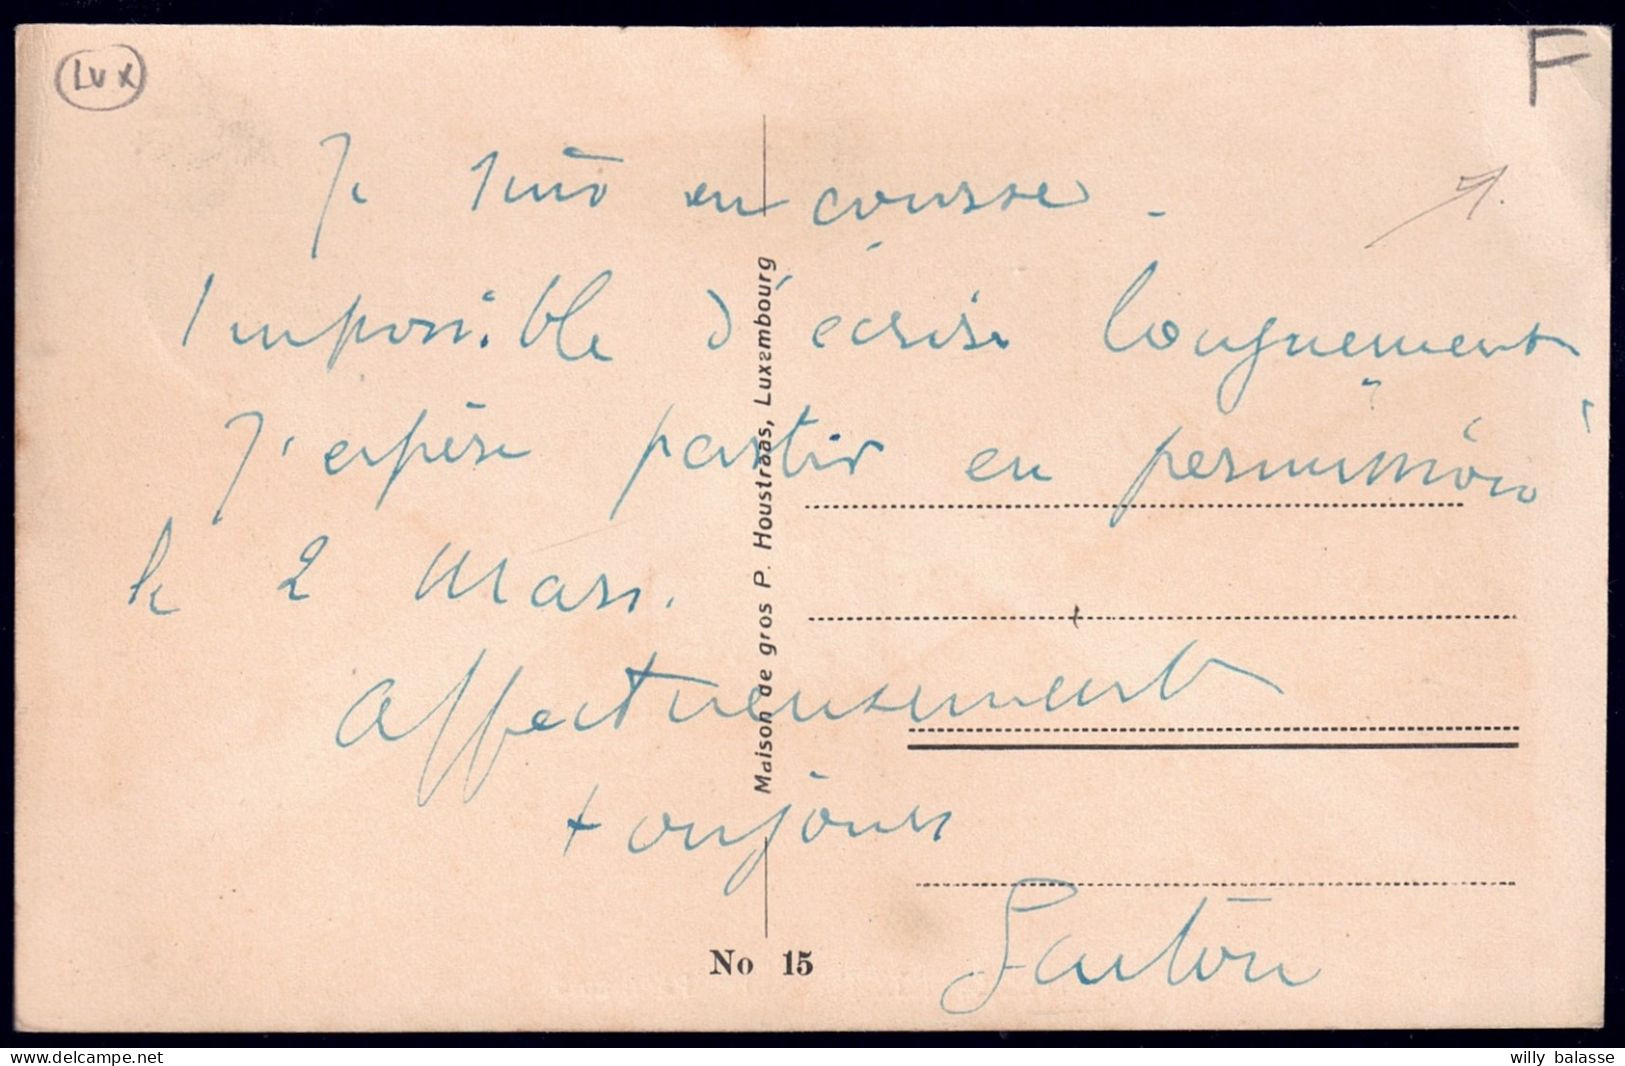 LUX
F
Je suis en course.
Impossible d'écrire longuement
J'espère partir en permission
le 2 Mars.
Affectueusement
toujours
Gaston
Maison de gros P. Houstraas, Luxembourg
No 15
willy balasse